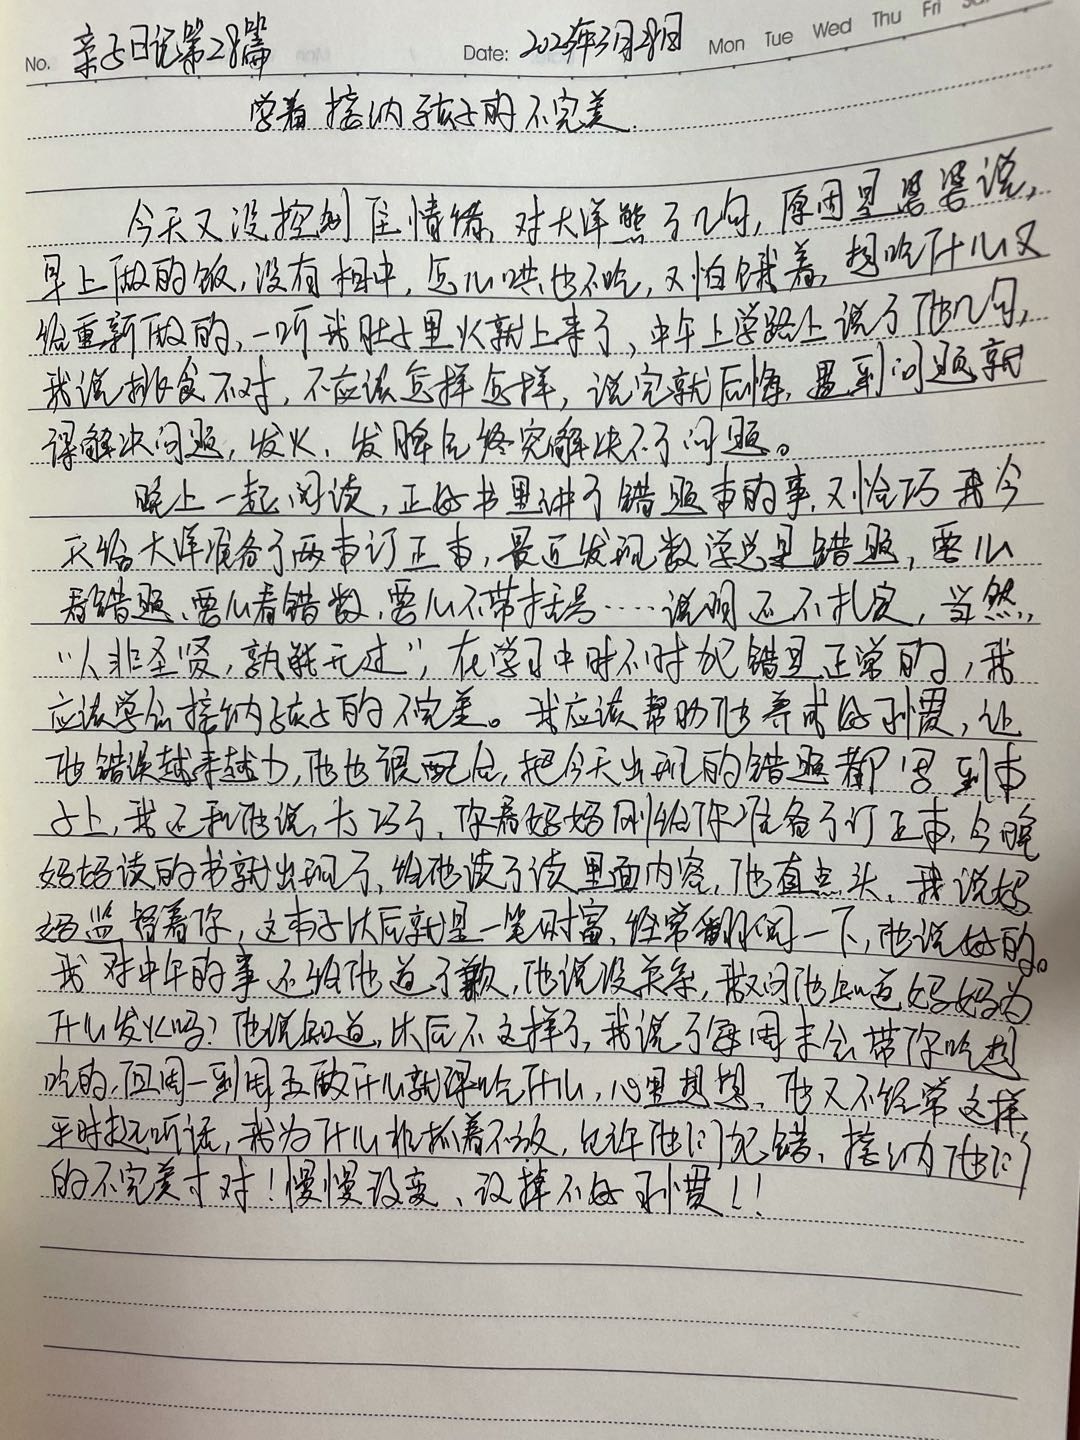 No. 亲子日记第28篇 Date: 2023年3月28日 Mon Tue Wed Thu Fri
学着接纳孩子的不完美.
今天又没控制住情绪,对大洋熊了几句,原因是婆婆说,
早上做的饭,没有相中,怎么哄也不吃,又怕饿着,想吃什么又
给重新做的,一听我肚子里火就上来了,中午上学路上说了他几句,
我说挑食不对,不应该怎样怎样,说完就后悔,遇到问题就
得解决问题,发火、发脾气终究解决不了问题。
晚上一起阅读,正好书里讲了错题本的事,又恰巧我今
天给大洋准备了两本订正本,最近发现数学总是错题,要么
看错题、要么看错数,要么不带括号……说明还不扎实,当然,
"人非圣贤,孰能无过",在学习中时不时犯错是正常的,我
应该学会接纳孩子的不完美。我应该帮助他养成好习惯,让
他错误越来越少,他也很配合,把今天出现的错题都写到本
子上,我还和他说,太巧了,你看妈妈刚给你准备了订正本,今晚
妈妈读的书就出现了,给他读了读里面内容,他直点头,我说妈
妈监督着你,这本子以后就是一笔财富,经常翻阅一下,他说好的。
我对中午的事还给他道了歉,他说没关系,我又问他知道妈妈为
什么发火吗?他说知道,以后不这样了,我说了每周末会带你吃想
吃的,但周一到周五做什么就得吃什么,心里想想,他又不经常这样
平时挺听话,我为什么非抓着不放,允许他们犯错、接纳他们
的不完美才对!慢慢改变、改掉不好习惯!!